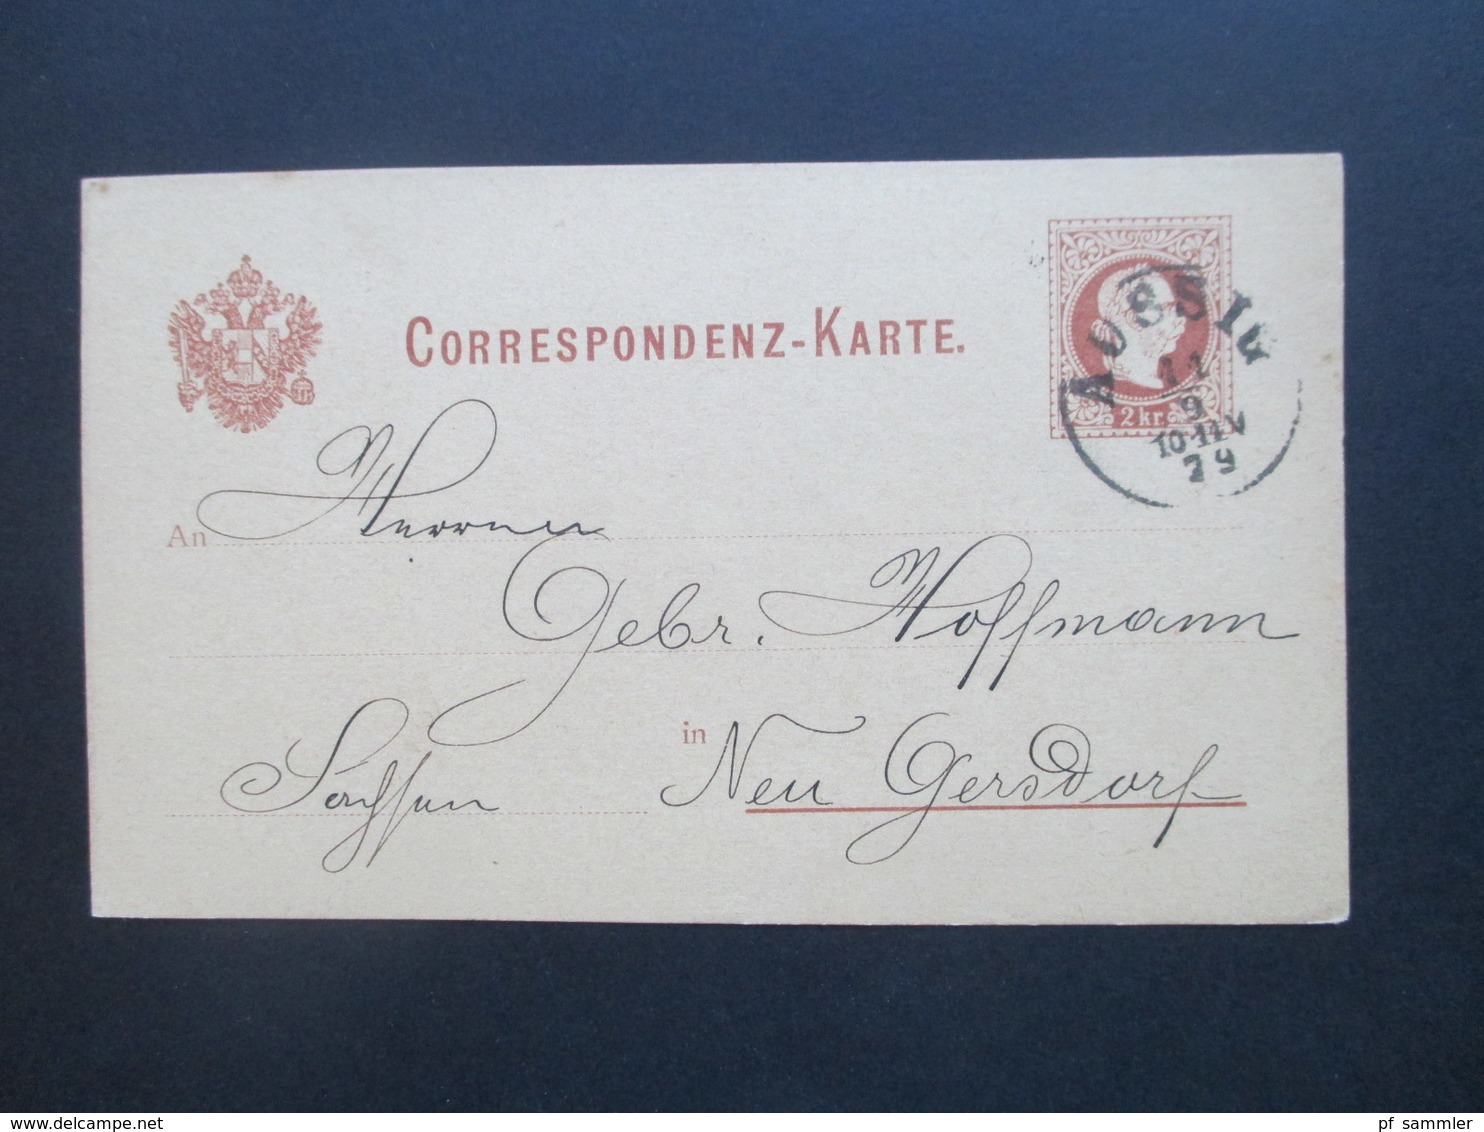 CORRESPONDENZ-KARTE.
AUSSIG
11
9
10-11V
79
2 kr.
An Herren
Gebr. Hoffmann
in Neu Gersdorf
Sachsen
delcampe.net
pf_sammler